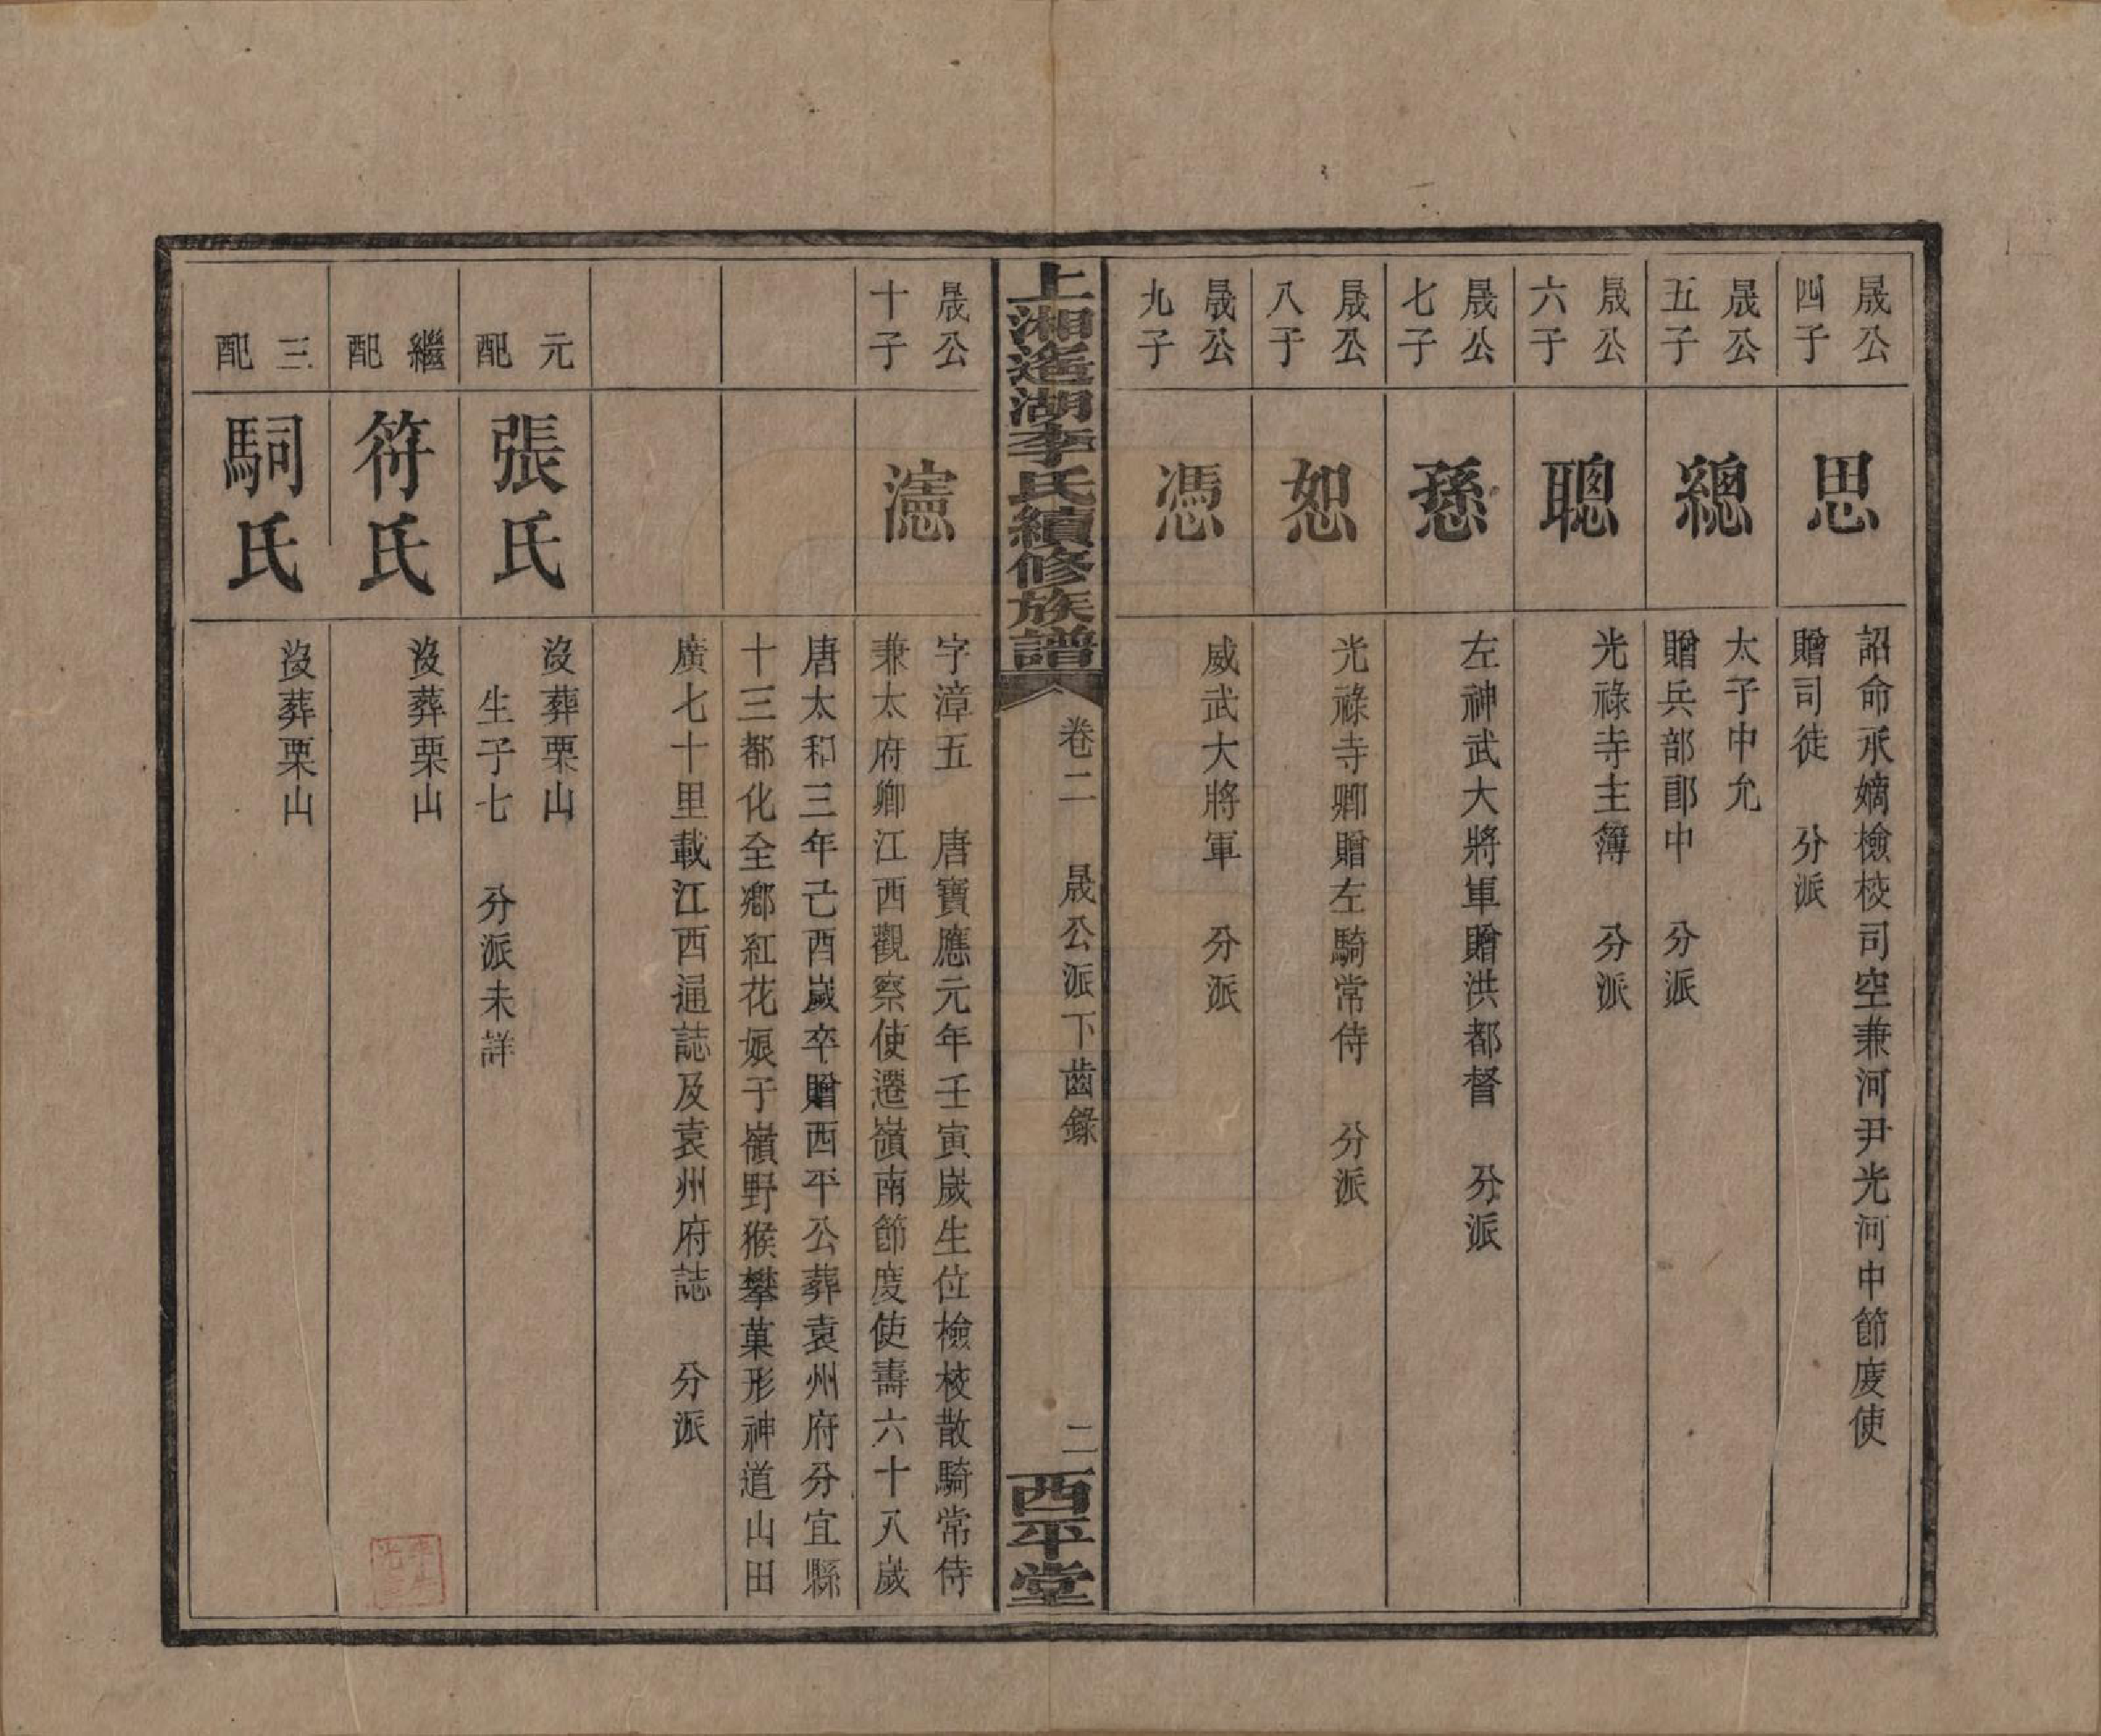 晟公
四子
思
詔命承嫡檢校司空兼河尹光河中節度使
贈司徒　分派
晟公
五子
總
太子中允
贈兵部郎中　分派
晟公
六子
聰
光祿寺主簿　分派
晟公
七子
愻
左神武大將軍贈洪都督　分派
晟公
八子
恕
光祿寺卿贈左騎常侍　分派
晟公
九子
憑
威武大將軍　分派
上湘遙湖李氏續修族譜
卷二　晟公派下齒錄
二
西平堂
晟公
十子
瀗
字漳五　唐寶應元年壬寅歲生位檢校散騎常侍
兼太府卿江西觀察使遷嶺南節度使壽六十八歲
唐太和三年己酉歲卒贈西平公葬袁州府分宜縣
十三都化全鄉紅花娘于嶺野猴攀菓形神道山田
廣七十里載江西通誌及袁州府誌　分派
元
配
張氏
沒葬栗山
生子七　分派未詳
繼
配
符氏
沒葬栗山
三
配
駉氏
沒葬栗山